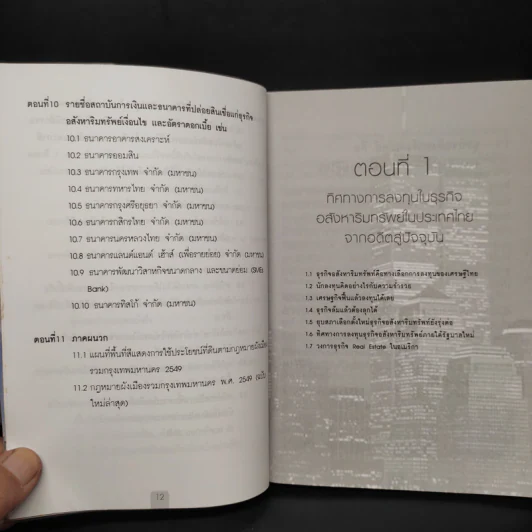 ตอนที่10 รายชื่อสถาบันการเงินและธนาคารที่ปล่อยสินเชื่อแก่ธุรกิจ
อสังหาริมทรัพย์เงื่อนไข และอัตราดอกเบี้ย เช่น
10.1 ธนาคารอาคารสงเคราะห์
10.2 ธนาคารออมสิน
10.3 ธนาคารกรุงเทพ จำกัด (มหาชน)
10.4 ธนาคารทหารไทย จำกัด (มหาชน)
10.5 ธนาคารกรุงศรีอยุธยา จำกัด (มหาชน)
10.6 ธนาคารกสิกรไทย จำกัด (มหาชน)
10.7 ธนาคารนครหลวงไทย จำกัด (มหาชน)
10.8 ธนาคารแลนด์แอนด์ เฮ้าส์ (เพื่อรายย่อย) จำกัด (มหาชน)
10.9 ธนาคารพัฒนาวิสาหกิจขนาดกลาง และขนาดย่อม (SME
Bank)
10.10 ธนาคารทิสโก้ จำกัด (มหาชน)
ตอนที่11 ภาคผนวก
11.1 แผนที่พื้นที่สีแสดงการใช้ประโยชน์ที่ดินตามกฎหมายผังเมือง
รวมกรุงเทพมหานคร 2549
11.2 กฎหมายผังเมืองรวมกรุงเทพมหานคร พ.ศ. 2549
ใหม่ล่าสุด)
12
ตอนที่ 1
ทิศทางการลงทุนในธุรกิจ
อสังหาริมทรัพย์ในประเทศไทย
จากอดีตสู่ปัจจุบัน
1.1 ธุรกิจอสังหาริมทรัพย์คือทางเลือกการลงทุนของเศรษฐีไทย
1.2 นักลงทุนคิดอย่างไรกับความร่ำรวย
1.3 เศรษฐกิจฟื้นแล้วลงทุนได้เลย
1.4 ธุรกิจล้มแล้วต้องลุกได้
1.5 ยุบสภาเลือกตั้งใหม่ธุรกิจอสังหาริมทรัพย์ยังรุ่งต่อ
1.6 ทิศทางการลงทุนธุรกิจอสังหาริมทรัพย์ภายใต้รัฐบาลใหม่
1.7 วงการธุรกิจ Real Estate ในอเมริกา